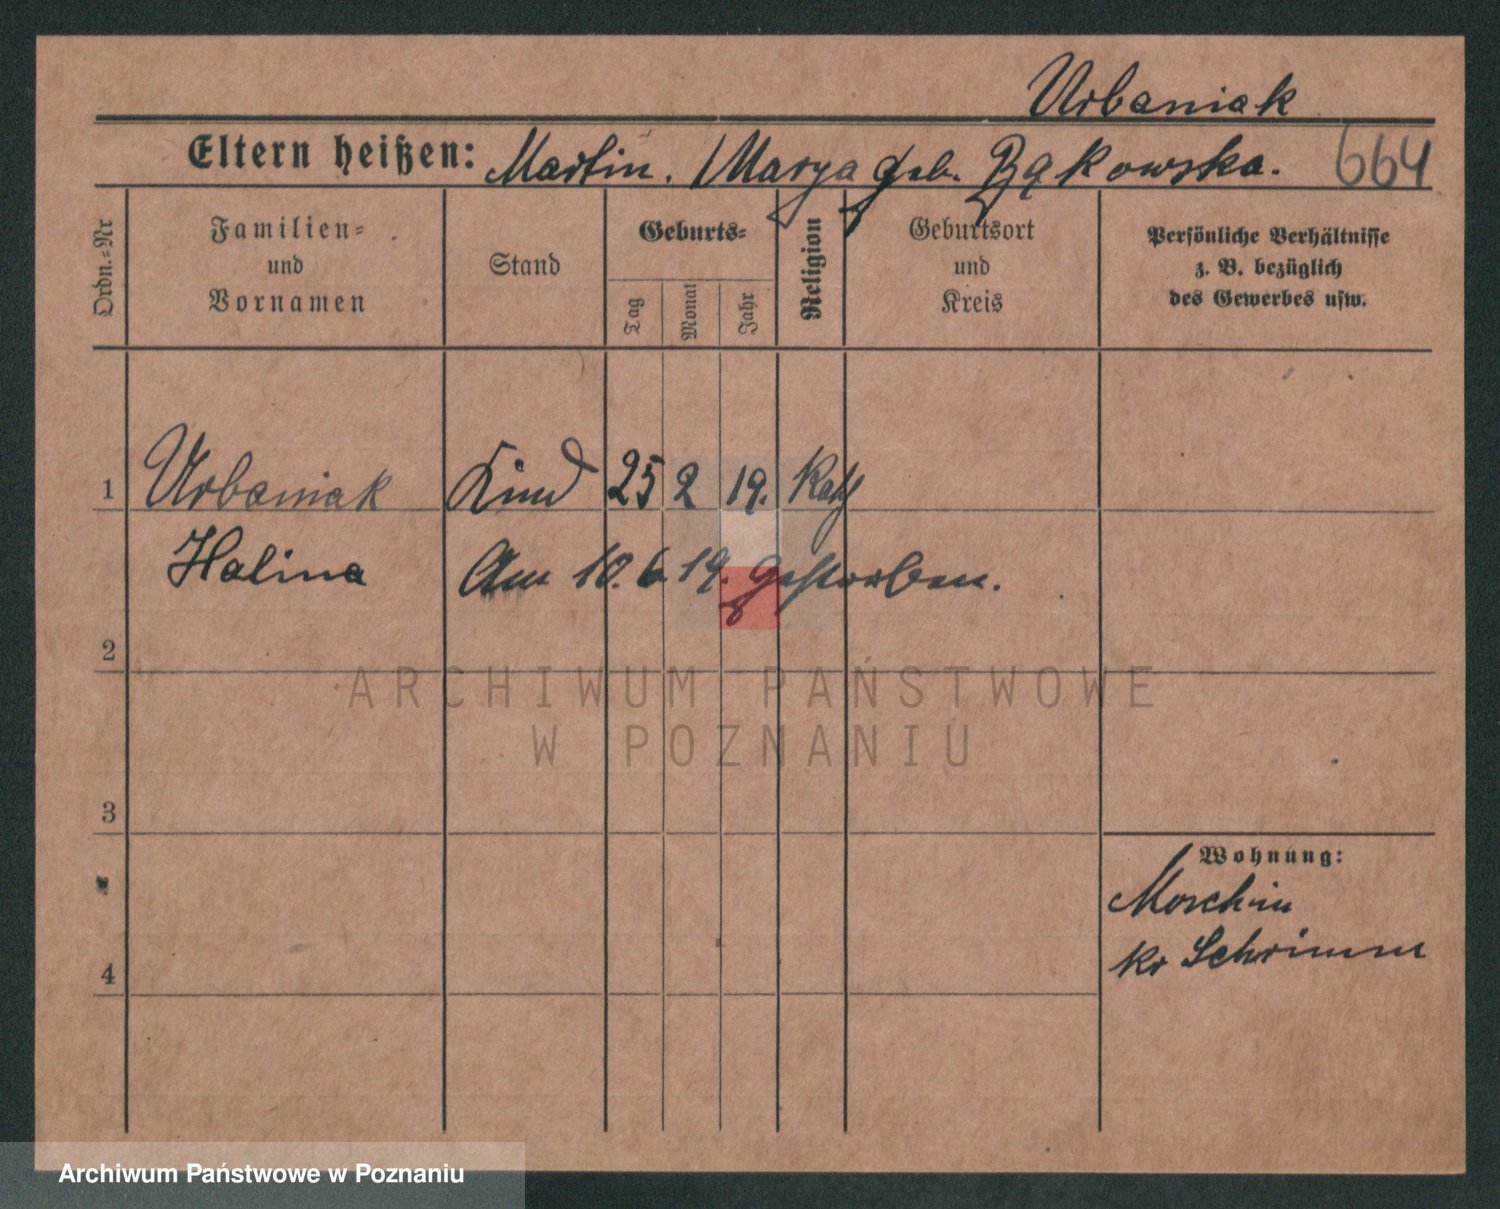 Urbaniak
Eltern heißen: Martin. Marya geb. Bąkowska. 664
Ordn.-Nr
Familien-
und
Vornamen
Stand
Geburts-
Tag
Monat
Jahr
Religion
Geburtsort
und
Kreis
Persönliche Verhältnisse
z. B. bezüglich
des Gewerbes usw.
1 Urbaniak Kind 25 2 19. Kath
Halina Am 10.6.19. gestorben.
2
ARCHIWUM PAŃSTWOWE
W POZNANIU
3
Wohnung:
Morchin
Kr Schrimm
4
Archiwum Państwowe w Poznaniu